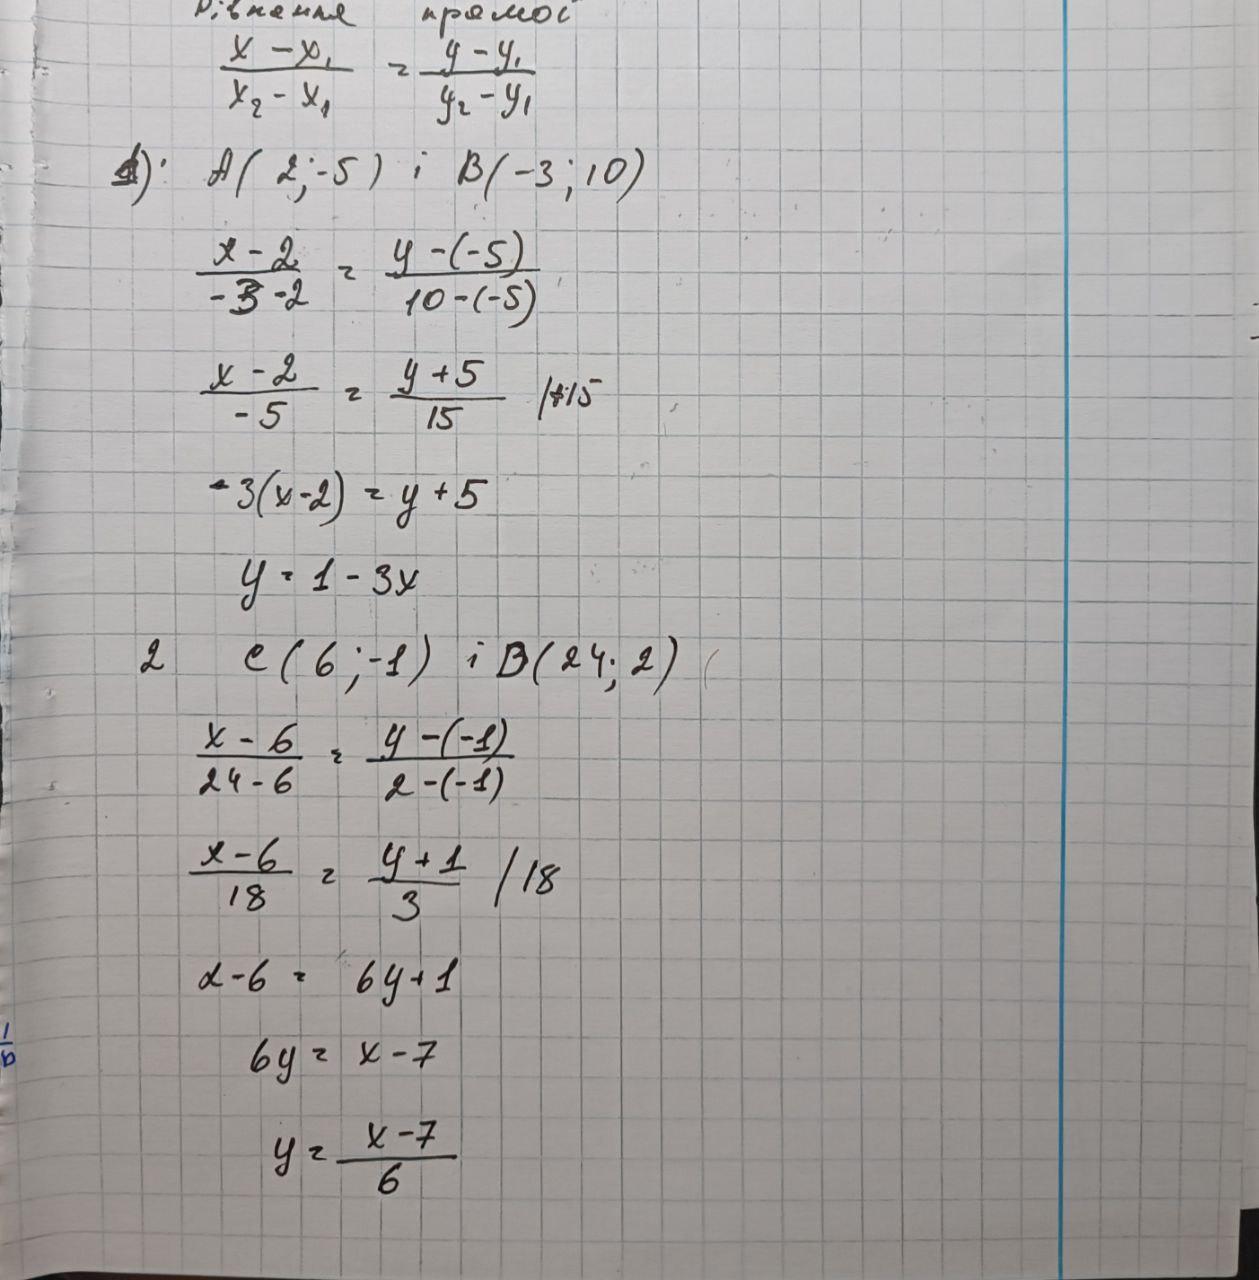 Рівняння прямої
(x - x₁)/(x₂ - x₁) = (y - y₁)/(y₂ - y₁)
1): A(2;-5) і B(-3;10)
(x - 2)/(-3 - 2) = (y - (-5))/(10 - (-5))
(x - 2)/(-5) = (y + 5)/15 /*15
-3(x-2) = y + 5
y = 1 - 3x
2 C(6;-1) і B(24;2)
(x - 6)/(24 - 6) = (y - (-1))/(2 - (-1))
(x - 6)/18 = (y + 1)/3 /18
x - 6 = 6y + 1
6y = x - 7
y = (x - 7)/6